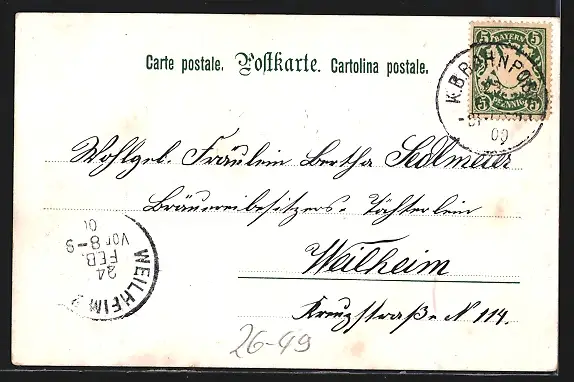 Carte postale. Postkarte. Cartolina postale.
5 BAYERN 5
5 PFENNIG 5
K.B.BAHNPOST
00
Wohlgeb. Fräulein Bertha Sedlmeier
Bräuereibesitzers-Töchterlein
Weilheim
Kreuzstraße N 114.
WEILHEIM
24
FEB.
Vor 8-9
26-49